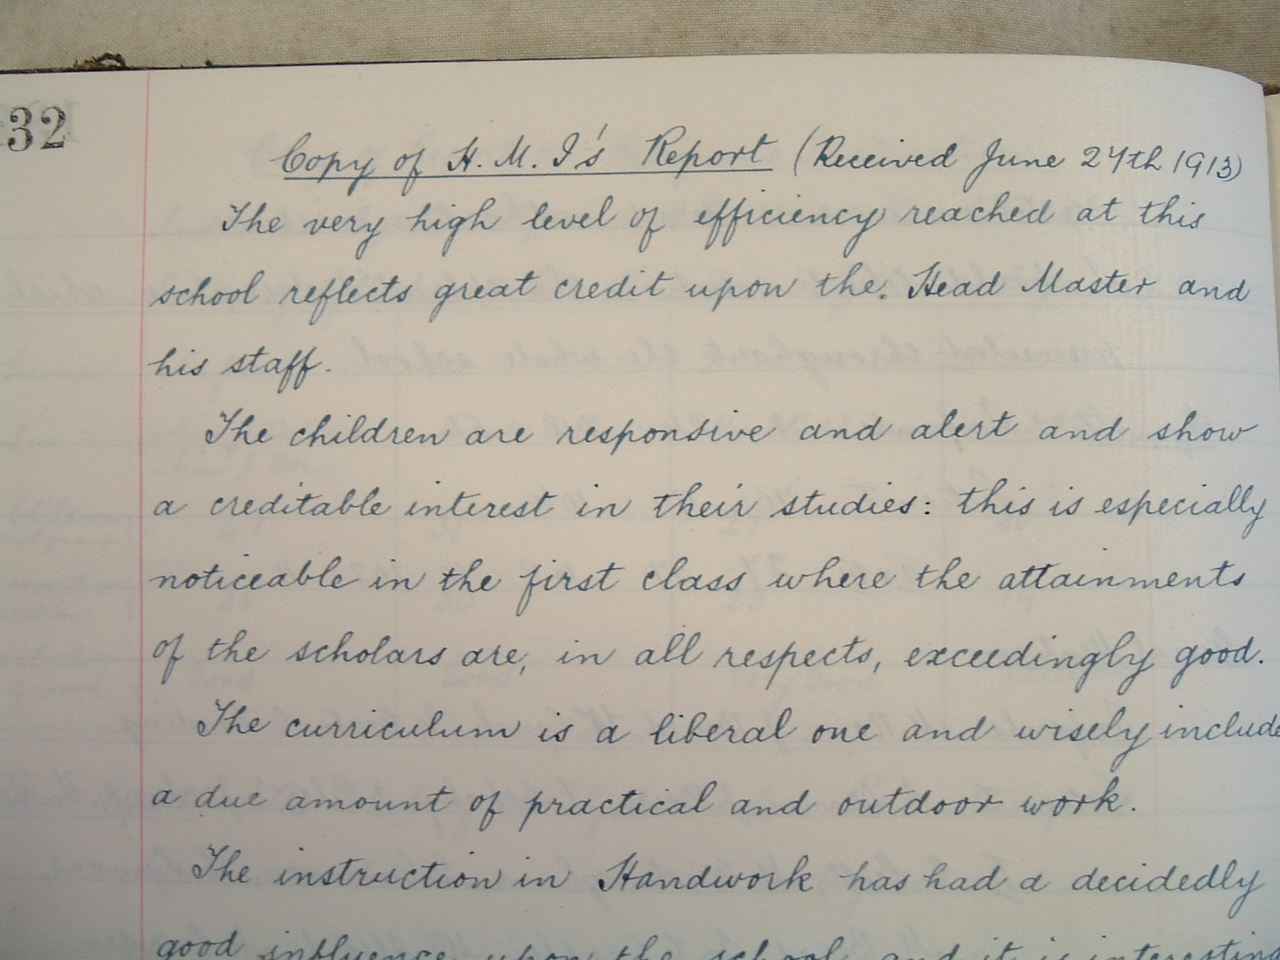 32
Copy of H. M. I's Report (Received June 27th 1913)
The very high level of efficiency reached at this
school reflects great credit upon the Head Master and
his staff.
The children are responsive and alert and show
a creditable interest in their studies: this is especially
noticeable in the first class where the attainments
of the scholars are, in all respects, exceedingly good.
The curriculum is a liberal one and wisely include
a due amount of practical and outdoor work.
The instruction in Handwork has had a decidedly
good influence upon the school and it is interesting